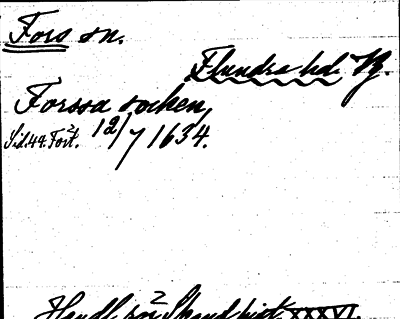 Fors sn.
Flundra hd. Vg.
Forssa socken,
12/7 1634.
Handl. rör Skand. hist. XXXVI.